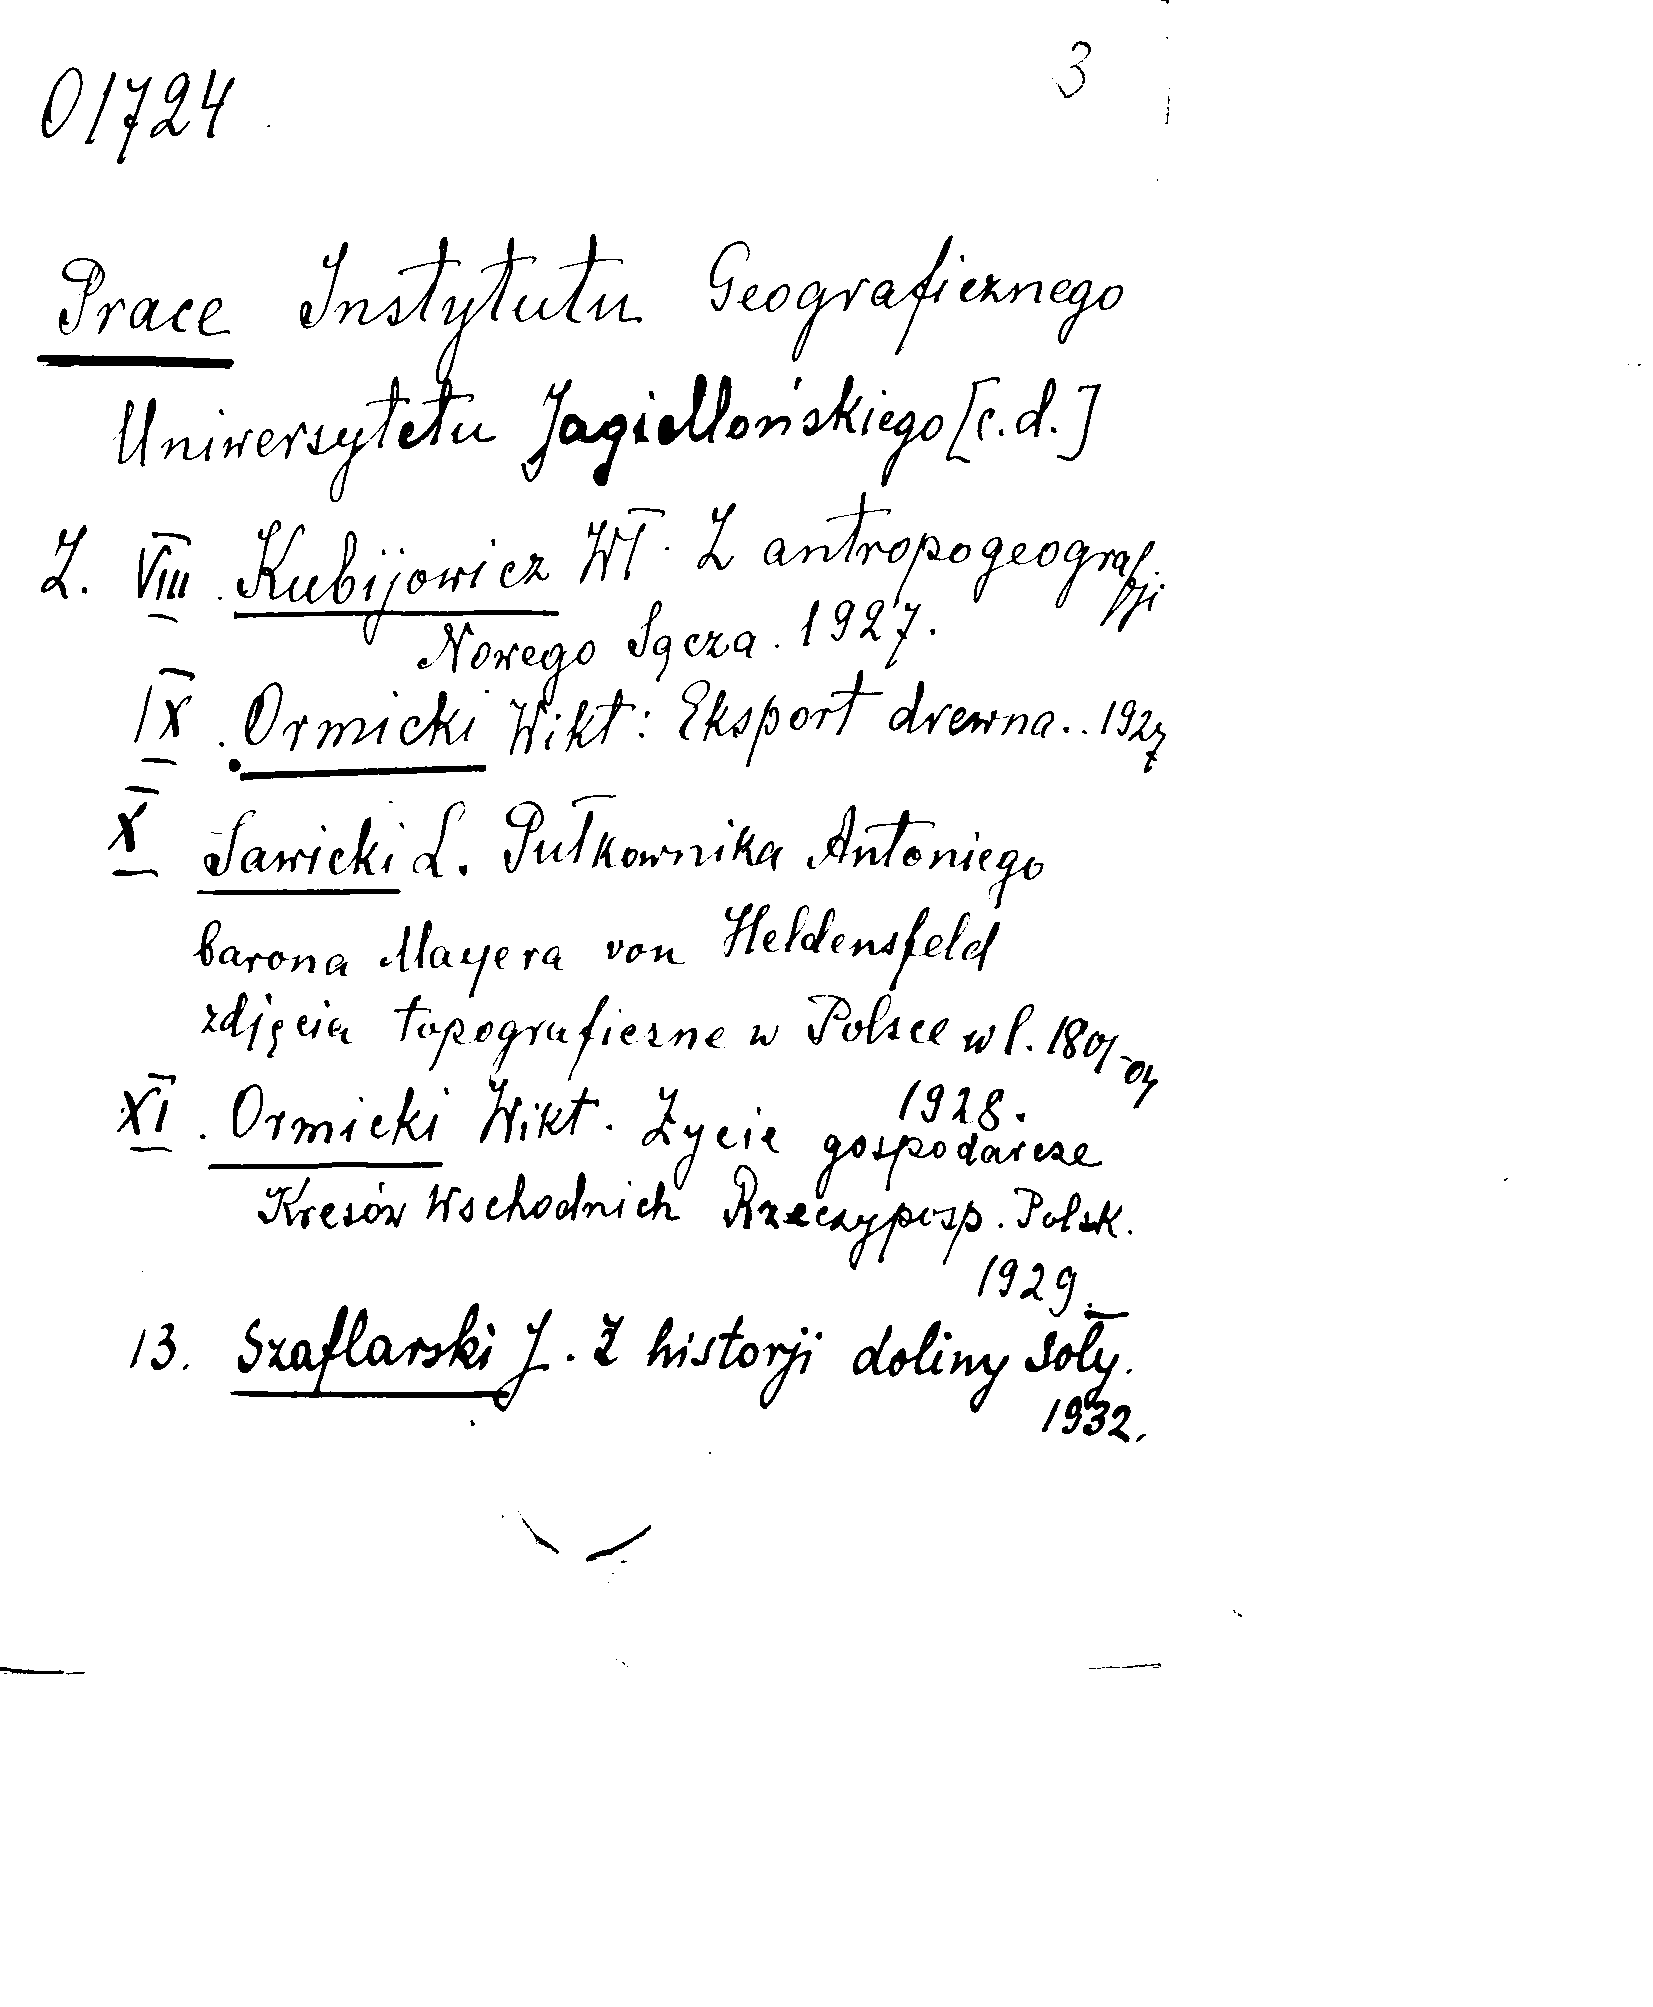 01724
3
Prace Instytutu Geograficznego
Uniwersytetu Jagiellońskiego [c.d.]
Z. VIII. Kubijowicz Wł. Z antropogeografji
Nowego Sącza. 1927.
IX. Ormicki Wikt: Eksport drewna.. 1927
X Sawicki L. Pułkownika Antoniego
barona Mayera von Heldensfeld
zdjęcia topograficzne w Polsce w l. 1801-04
1928.
XI. Ormicki Wikt. Życie gospodarcze
Kresów Wschodnich Rzeczyposp. Polsk.
1929.
13. Szaflarski J. Z historji doliny Soły.
1932.